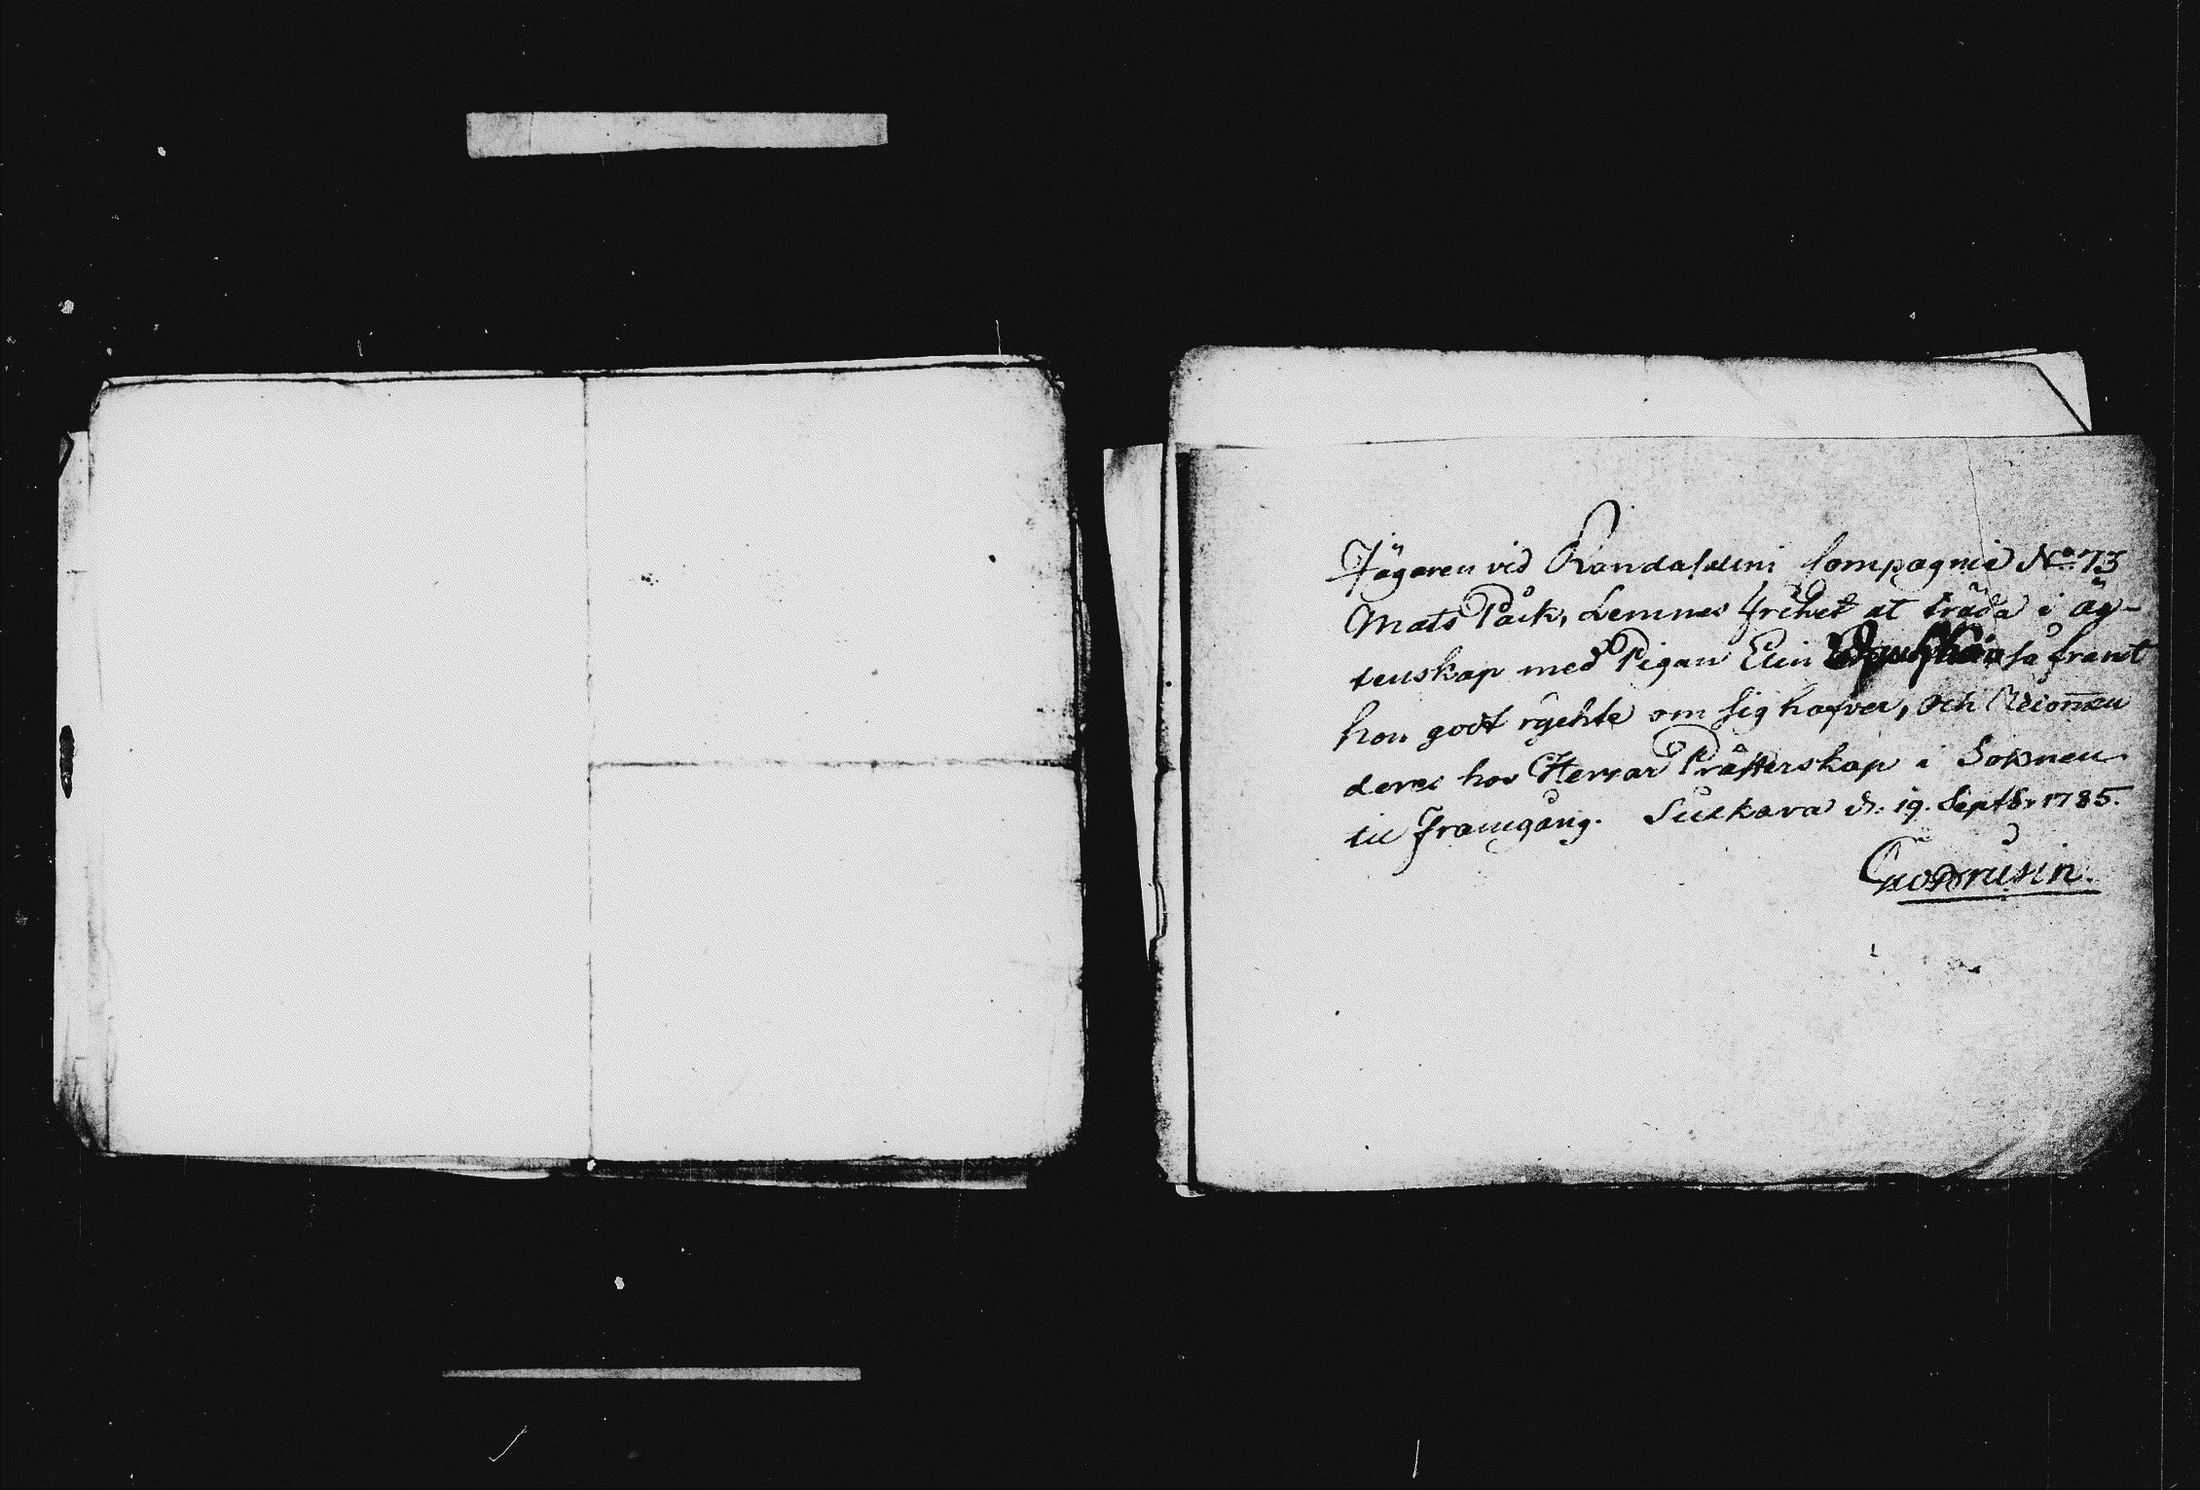 Jägaren vid Randasalmi Compagnie No 73
Mats Påck, Lemnas frihet at träda i äg-
tenskap med Pigan Elin så framt
hon godt rychte om sig hafver, och
deres hos Herrar Prästerskap i Soknen
til framgång. Sulkava d. 19. Septbr 1785.